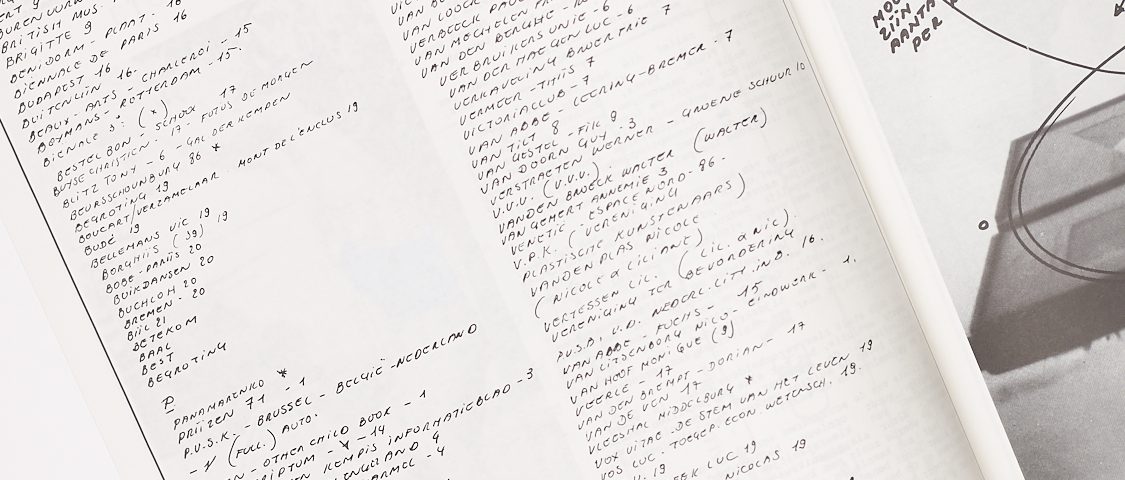 BRITISH MUS.
BRIGITTE 9
BENIDORM - PLAAT - 16
BIENNALE DE PARIS 16
BUDAPEST 16
BUITENLIN 16.
BEAUX-ARTS - CHARLEROI - 15
BEYMANS - ROTTERDAM - 15.
BIENALE 3: (X)
BESTEL BON - SCHOUX 17
BUYSE CHRISTIEN - 17 - FOTOS DE MORGEN
BLITZ TONY - 6 - GAL DER KEMPEN
BEURSSCHOUWBURG 86 *
BEGROTING 19
BOUCART/VERZAMELAAR - MONT DE L'ENCLUS 19
BUDÉ 19
BELLEMANS VIC 19
BORGHIJS (39) 19
BOBE-PARIJS 20
BUIKDANSEN 20
BUCHLOH 20
BREMEN - 20
BIJL 21
BETEKOM
BAAL
BEST
BEGROTING
P
PANAMARENKO *
PRIJZEN 71 - 1
P.U.S.K. - BRUSSEL - BELGIË-NEDERLAND
- 1 (FULL.) AUTO.
- OTHER CHILD BOOK - 1
- 14
KEMPIS INFORMATIEBLAD - 3
ENGELAND 4
- 4
VAN MECHELEN
VAN DEN BERGHE
VERBRUIKERS UNIE - 6
VAN DER HAEGEN LUC - 6
VERKAVELING BROER FRIE 7
VERMEER - THIJS 7
VICTORIACLUB - 7
VAN ABBE - LEERING-BREMER - 7
VAN TILT 8
VAN GESTEL - FIK 9
VAN DOORN GUY - 3
VERSTRAETEN WERNER - GROENE SCHUUR 10
V.U.V. (V.U.V.)
VANDEN BROECK WALTER (WALTER)
VAN GEMERT ANNEMIE 3
VENETIË - ESPACE NORD - 86.
V.P.K. (VERENIGING
PLASTISCHE KUNSTENAARS)
VANDEN PLAS NICOLE
(NICOLE & LILIANE)
VERTESSEN LIL. (LIL. & NIC).
VERENIGING TER BEVORDERING
V.D. NEDERL. LITT. IN B. 16.
VAN ABBE - FUCHS - 15
VAN LIJSENBORG NICO - EINDWERK - 1.
VAN HOOF MONIQUE (9)
VEERLE - 17
VAN DEN BREMPT - DORIAN - 17
VAN DE VEN 17
VLEESHAL MIDDELBURG *
VOX VITAE DE STEM VAN HET LEVEN 19
VOS LUC. TOEGEP. ECON. WETENSCH. 19.
19
LUC 19
NICOLAS 19
ZIJN
AANTA
PER